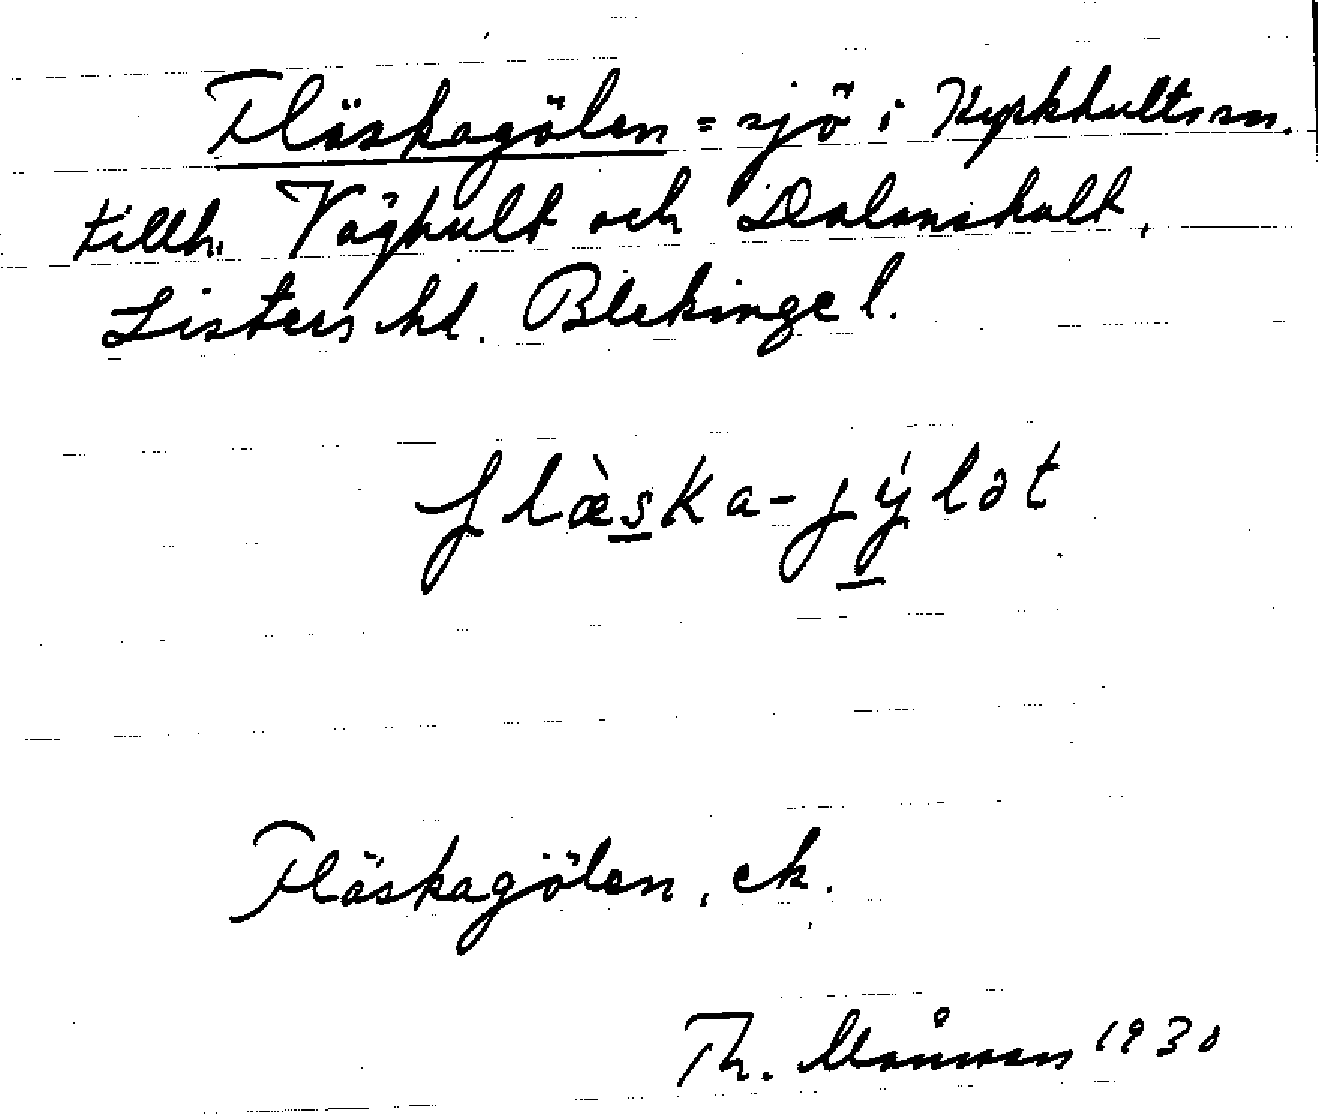 Fläskagölen = sjö i Kyrkhults sn.
tillh. Väghult och Dalanshult,
Listers hd. Blekinge l.
flæ̀ska-jýlət
Fläskagölen, ek.
Th. 1930